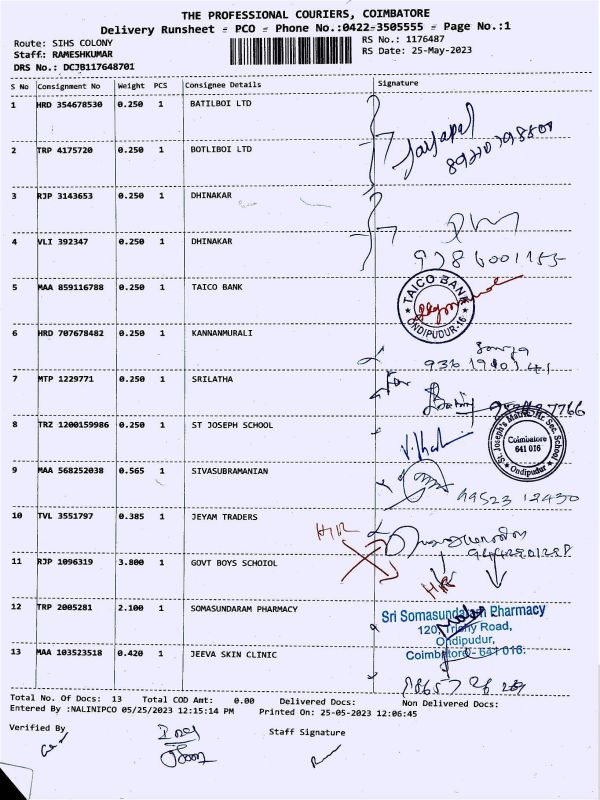 THE PROFESSIONAL COURIERS, COIMBATORE
Delivery Runsheet - PCO - Phone No.:0422-3505555 - Page No.:1
Route: SIHS COLONY
RS No.: 1176487
Staff: RAMESHKUMAR
RS Date: 25-May-2023
DRS No.: DCJB117648701
S No Consignment No Weight PCS Consignee Details Signature
1 HRD 354678530 0.250 1 BATILBOI LTD
Jayapal
2 TRP 4175720 0.250 1 BOTLIBOI LTD
3 RJP 3143653 0.250 1 DHINAKAR
4 VLI 392347 0.250 1 DHINAKAR
5 MAA 859116788 0.250 1 TAICO BANK
TAICO BANK
ONDIPUDUR-16
6 HRD 707678482 0.250 1 KANNANMURALI
7 MTP 1229771 0.250 1 SRILATHA
8 TRZ 1200159986 0.250 1 ST JOSEPH SCHOOL
St. Joseph's Matric. Hr. Sec. School
Coimbatore
641 016
Ondipudur
9 MAA 568252038 0.565 1 SIVASUBRAMANIAN
10 TVL 3551797 0.385 1 JEYAM TRADERS
11 RJP 1096319 3.800 1 GOVT BOYS SCHOIOL
12 TRP 2005281 2.100 1 SOMASUNDARAM PHARMACY
Sri Somasundaram Pharmacy
120, Trichy Road,
Ondipudur,
Coimbatore - 641 016.
13 MAA 103523518 0.420 1 JEEVA SKIN CLINIC
Total No. Of Docs: 13 Total COD Amt: 0.00 Delivered Docs: Non Delivered Docs:
Entered By :NALINIPCO 05/25/2023 12:15:14 PM Printed On: 25-05-2023 12:06:45
Verified By
Staff Signature